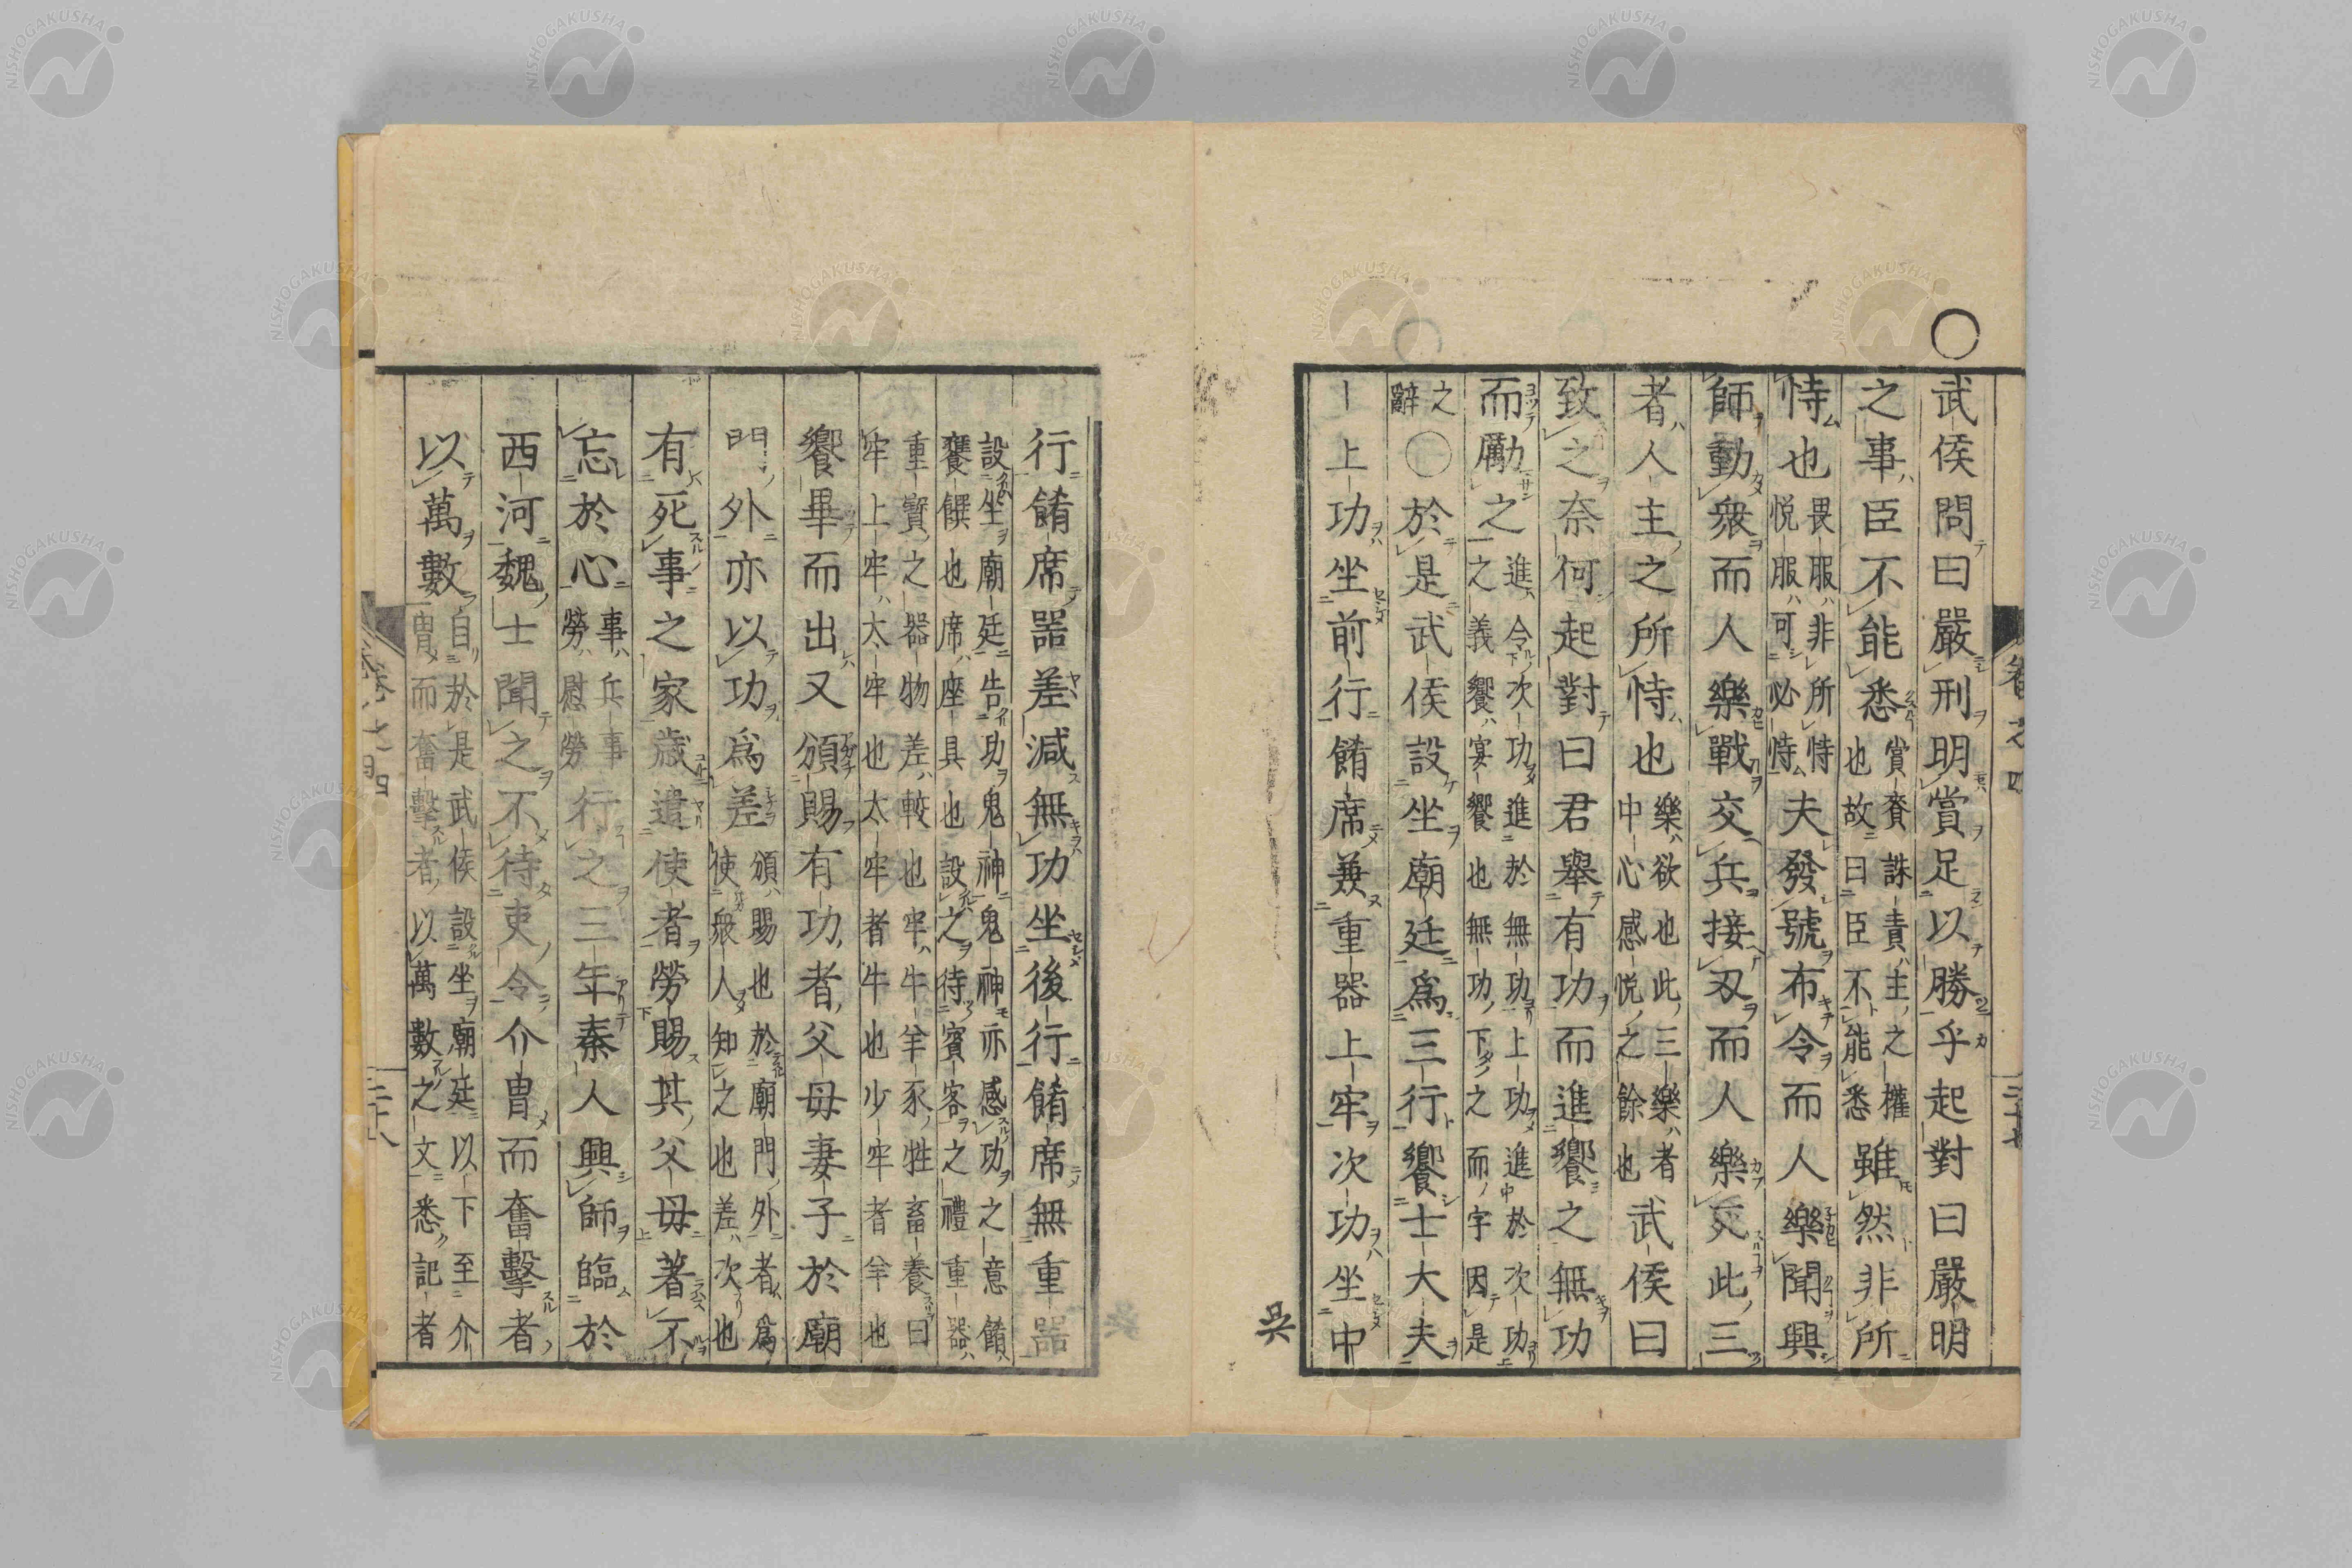 武侯問曰嚴刑明賞足以勝乎起對曰嚴明
之事臣不能悉賞賚誅責主之權也故曰臣不能悉雖然非所
恃也畏服非所恃悦服可必恃夫發號布令而人樂聞興
師動衆而人樂戰交兵接刃而人樂死此三
者人主之所恃也樂欲也此三樂者中心感悦之餘也武侯曰
致之奈何起對曰君舉有功而進饗之無功
而勵之進令次功進於無功上功進於次功之義饗宴饗也無功下之而字因是
之辭○於是武侯設坐廟廷爲三行饗士大夫
上功坐前行餚席兼重器上牢次功坐中
行餚席器差減無功坐後行餚席無重器
設坐廟廷告功鬼神鬼神亦感功之意餚饔饌也席座具也設之待賓客之禮重器
重寳之器物差較也牢牛羊豕牲畜養曰牢上牢太牢也太牢者牛也少牢者羊也
饗畢而出又頒賜有功者父母妻子於廟
門外亦以功爲差頒賜也於廟門外者爲使衆人知之也差次也
有死事之家歳遣使者勞賜其父母著不
忘於心事兵事勞慰勞行之三年秦人興師臨於
西河魏士聞之不待吏令介胄而奮擊者
以萬數自於是武侯設坐廟廷以下至介胄而奮擊者以萬數之文悉記者
卷之四
吳